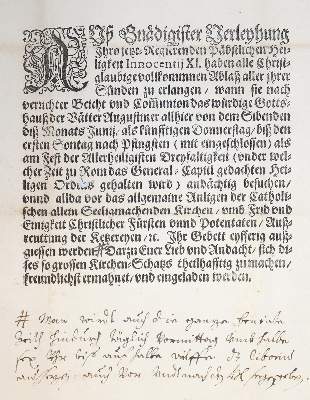 Auß Gnädigister Verleyhung
Ihro jetzt-Regierenden Päbstlichen Hei-
ligkeit Innocentij XI. haben alle Christ-
glaubige vollkommnen Ablaß aller jhrer
Sünden zu erlangen / wann sie nach
verrichter Beicht vnd Co͂munion das würdige Gotts-
hauß der Vätter Augustiner allhier von dem Sibenden
diß Monats Junij, als künfftigen Donnerstag / biß den
ersten Sontag nach Pfingsten (mit eingeschlossen) als
am Fest der Allerheiligisten Dreyfaltigkeit (vnder wel-
cher Zeit zu Rom das General-Capitl gedachten Hei-
ligen Ordens gehalten wird) andächtig besuchen /
vnnd allda vor das allgemaine Anligen der Catholi-
schen allein Seeligmachenden Kirchen / vmb Frid vnd
Einigkeit Christlicher Fürsten vnnd Potentaten / Auß-
reuttung der Ketzereyen / ꝛc. Ihr Gebett eyfferig auß-
giessen werden. Darzu Euer Lieb vnd Andacht / sich di-
ses so grossen Kirchen-Schatzs theilhafftig zu machen /
freundlichst ermahnet / vnd eingeladen werden.
# Man wird auch die ganze
Zeit hindurch täglich Vormittag vmb halbe
Uhr biß auf halbe das Ciborium
auch Vor vnd nach